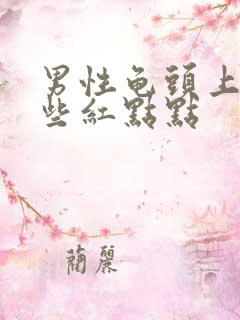 男性龟頭上
些紅點點
蘭麗